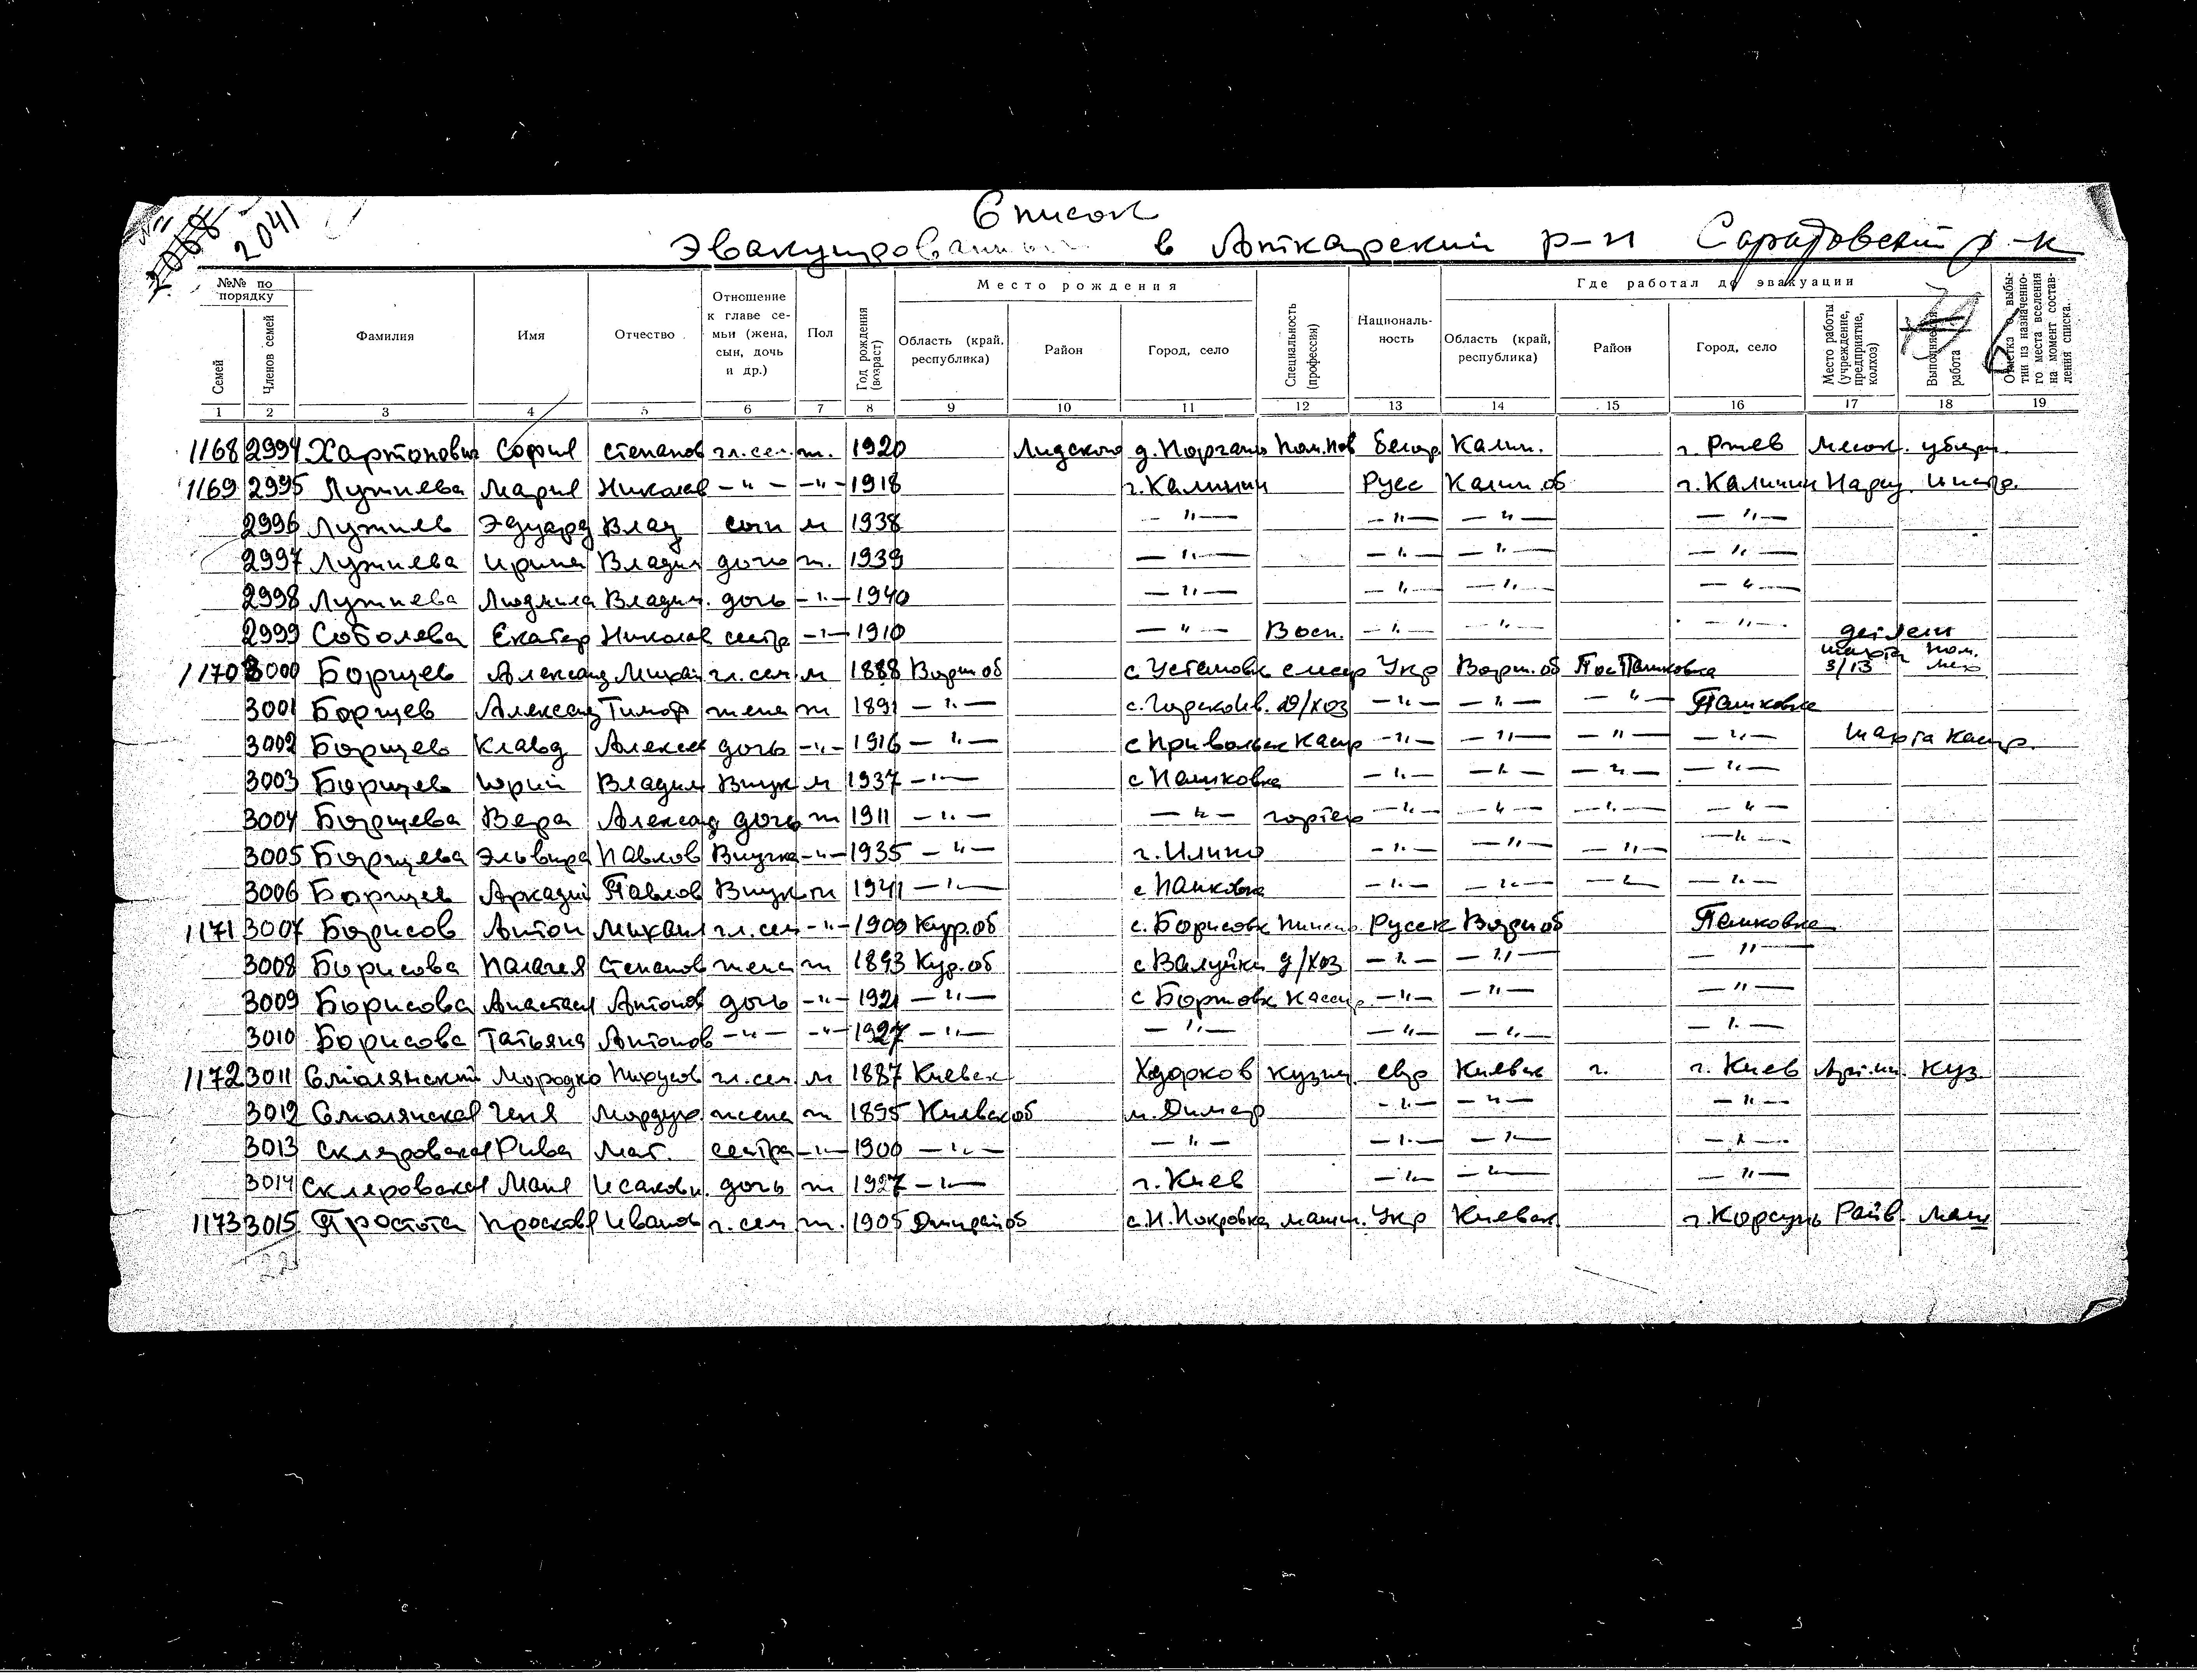 № 2068
2041
Список
Эвакуированных в Аткарский р-н Саратовский
№№ по порядку
Семей
Членов семей
Фамилия
Имя
Отчество
Отношение к главе семьи (жена, сын, дочь и др.)
Пол
Год рождения (возраст)
Место рождения
Область (край, республика)
Район
Город, село
Специальность (профессия)
Националь-ность
Где работал до эвакуации
Область (край, республика)
Район
Город, село
Место работы (учреждение, предприятие, колхоз)
Выполняемая работа
Отметка о выбы-тии из назначенно-го места вселения на момент состав-ления списка.
1 2 3 4 5 6 7 8 9 10 11 12 13 14 15 16 17 18 19
1168 2994 Хартонович София Степанов гл. сем. ж. 1920 Лидского д. Пом. пов Белор. Калин. г. Ржев Мясок. уборщ.
1169 2995 Лужнева Мария Николаев -"- -"- 1918 г. Калинин Русс Калин. об г. Калинин Нарсу. Инстр.
2996 Лужнев Эдуард Влад сын м 1938 -"- -"- -"- -"-
2997 Лужнева Ирина Владим дочь ж. 1939 -"- -"- -"- -"-
2998 Лужнева Людмила Владим. дочь -"- 1940 -"- -"- -"- -"-
2999 Соболева Екатер Николаев сестр -"- 1910 -"- Восп. -"- -"- -"- дет ясли
1170 3000 Борщев Александ Михай гл. сем м 1888 Ворш об с Устиновк слесар Укр Ворш. об Пос Пашковка шахта 3/13 пом. мех
3001 Борщев Александ Тимоф жена ж 1891 -"- с. д/хоз -"- -"- -"- Пашковка
3002 Борщев Клавд Алексан дочь -"- 1916 -"- с Привольн Касир -"- -"- -"- -"- шахта Касир.
3003 Борщев Юрий Владим Внук м 1937 -"- с Пашковка -"- -"- -"- -"-
3004 Борщева Вера Александ дочь ж 1911 -"- -"- чертеж -"- -"- -"- -"-
3005 Борщева Эльвира Павлов Внучка -"- 1935 -"- г. Илино -"- -"- -"- -"-
3006 Борщев Аркадий Павлов Внук м 1941 -"- с Пашковка -"- -"- -"- -"-
1171 3007 Борисов Антон Михаил гл. сем -"- 1900 Кур. об с. Борисовк Русск Ворш об Пашковка
3008 Борисова Палагея Степанов жена ж 1893 Кур. об с Валуйки д/хоз -"- -"- -"-
3009 Борисова Анастаси Антонов дочь -"- 1921 -"- с Борисовк Кассир -"- -"- -"-
3010 Борисова Татьяна Антонов -"- -"- 1927 -"- -"- -"- -"- -"-
1172 3011 Смолянский Мородко гл. сем. м 1887 Киевск Ходорков Кузн. евр Киевск г. г. Киев Куз
3012 Смолянская Геня Мордух. жена ж 1895 Киевск об м. Димер -"- -"- -"-
3013 Скляровская Рива Мат. сестра -"- 1900 -"- -"- -"- -"- -"-
3014 Скляровская Маня Исаковн. дочь ж 1927 -"- г. Киев -"- -"- -"-
1173 3015 Простота Просковя Иванов г. сем ж. 1905 с. Н. Покровка маши. Укр Киевск г. Корсунь Райв. маш
22